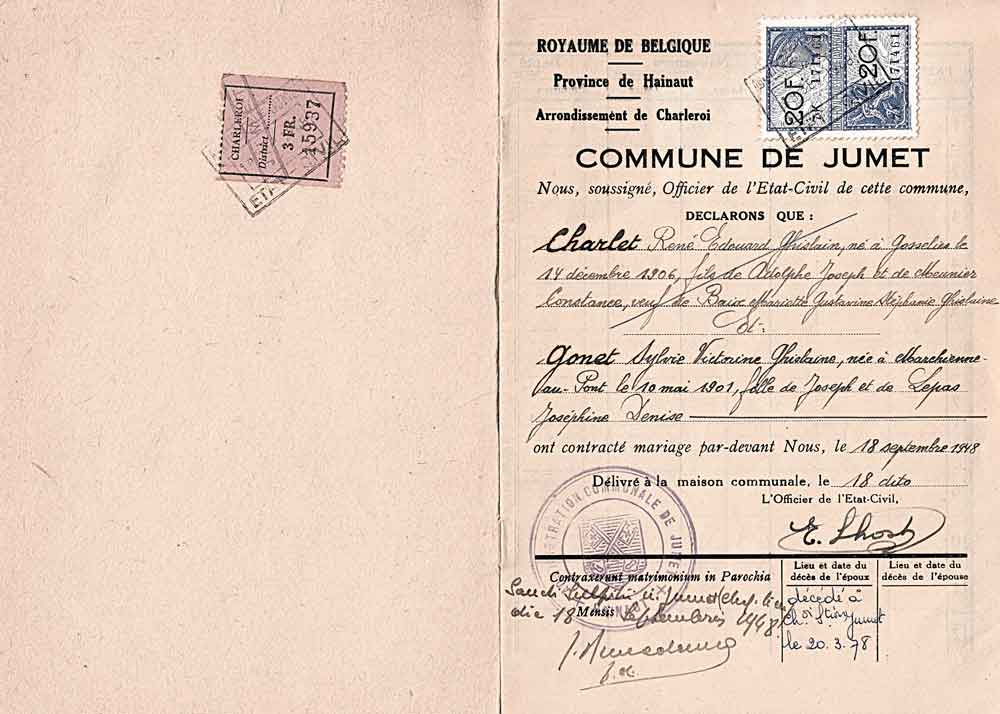 CHARLEROI
District
3 FR.
15937
ROYAUME DE BELGIQUE
Province de Hainaut
Arrondissement de Charleroi
20F.
171461
20F.
171461
COMMUNE DE JUMET
Nous, soussigné, Officier de l'Etat-Civil de cette commune,
DECLARONS QUE :
Charlet René Edouard Ghislain, né à Gosselies le
14 décembre 1906, fils de Adolphe Joseph et de Meunier
Constance, veuf de Baix Mariette Gustavine Stéphanie Ghislaine
Et
Gonet Sylvie Victorine Ghislaine, née à Marchienne-
au-Pont le 10 mai 1901, fille de Joseph et de Lepas
Joséphine Denise
ont contracté mariage par-devant Nous, le 18 septembre 1948
Délivré à la maison communale, le 18 dito
L'Officier de l'Etat-Civil,
E. Lhost
ADMINISTRATION COMMUNALE DE JUMET
HAINAUT
Contraxerunt matrimonium in Parochia
Sancti Sulpitii in Jumet (Chef-lieu
die 18 Mensis Septembris 1948
Lieu et date du
décès de l'époux
décédé à
Jumet
le 20.3.78
Lieu et date du
décès de l'épouse